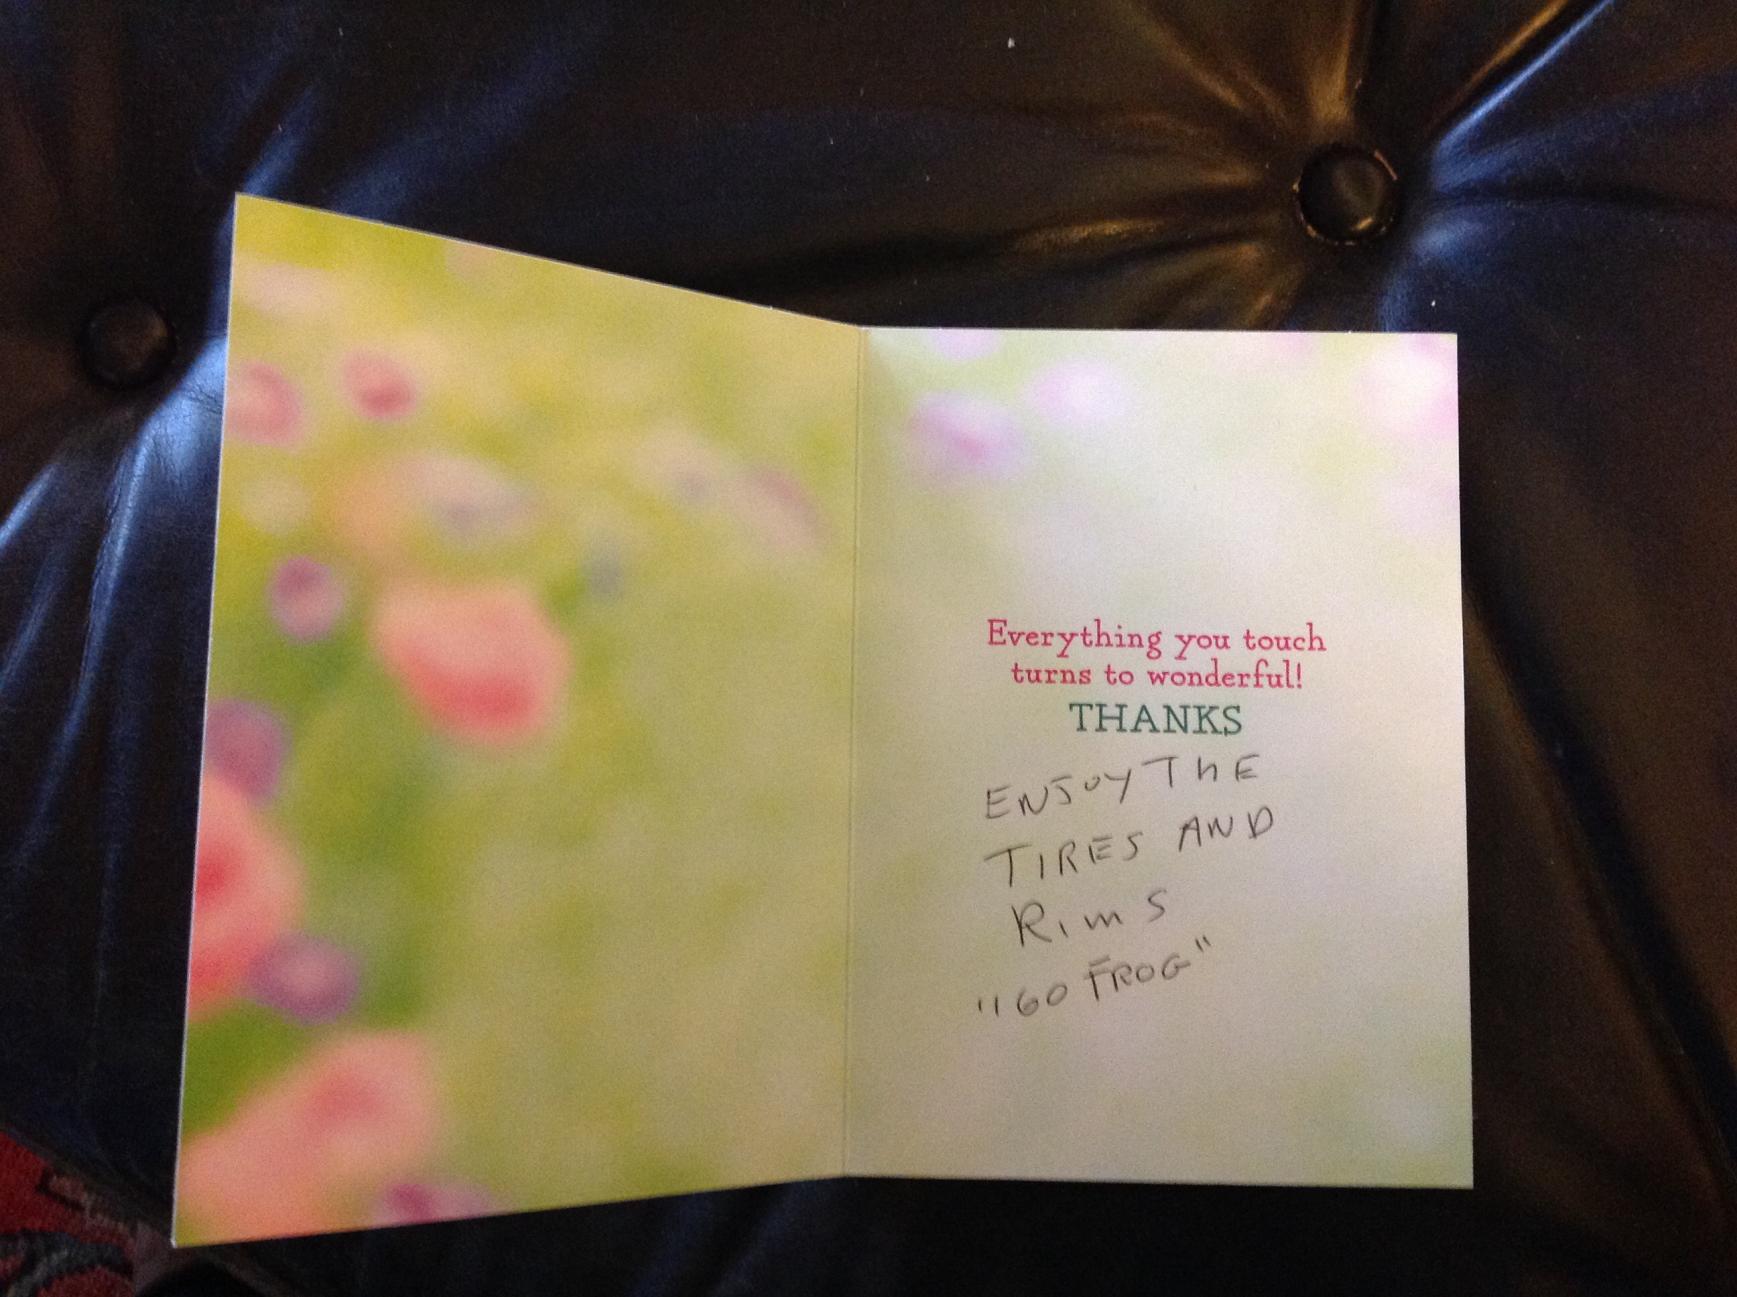 Everything you touch
turns to wonderful!
THANKS
ENJOY THE
TIRES AND
RIMS
"160 FROG"